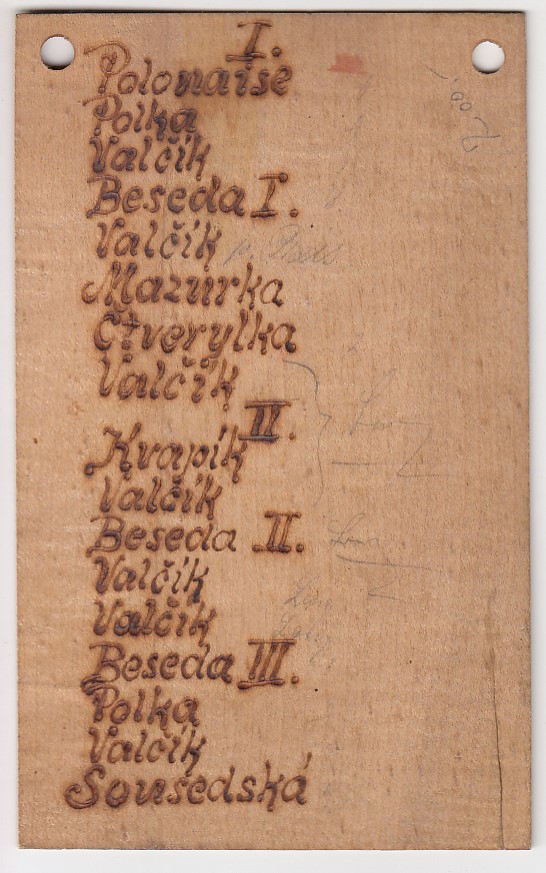 I.
Polonaise
Polka
Valčík
Beseda I.
Valčík
Mazurka
Čtverylka
Valčík
II.
Kvapík
Valčík
Beseda II.
Valčík
Valčík
Beseda III.
Polka
Valčík
Sousedská